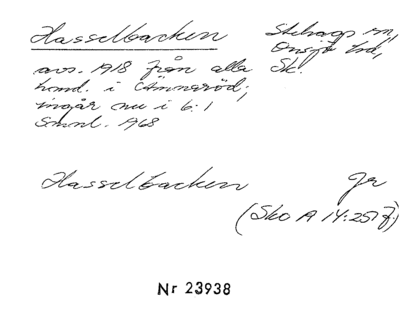 Hasselbacken Stehags sn,
Onsjö hd,
avs. 1918 från alla Sk.
hemd. i Ämnaröd;
ingår nu i 6:1
Smnl. 1968
Hasselbacken Gr
(Sko A 14:257 f.)
Nr 23938